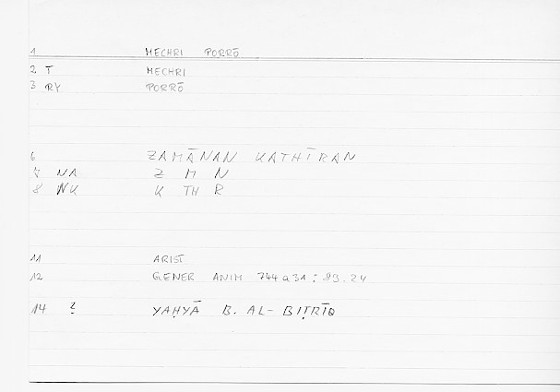 1 MECHRI PORRŌ
2 T MECHRI
3 RY PORRŌ
6 ZAMĀNAN KATHĪRAN
7 NA Z M N
8 NK K TH R
11 ARIST
12 GENER ANIM 744a31 : 89.24
14 ? YAḤYĀ B. AL-BIṬRĪQ